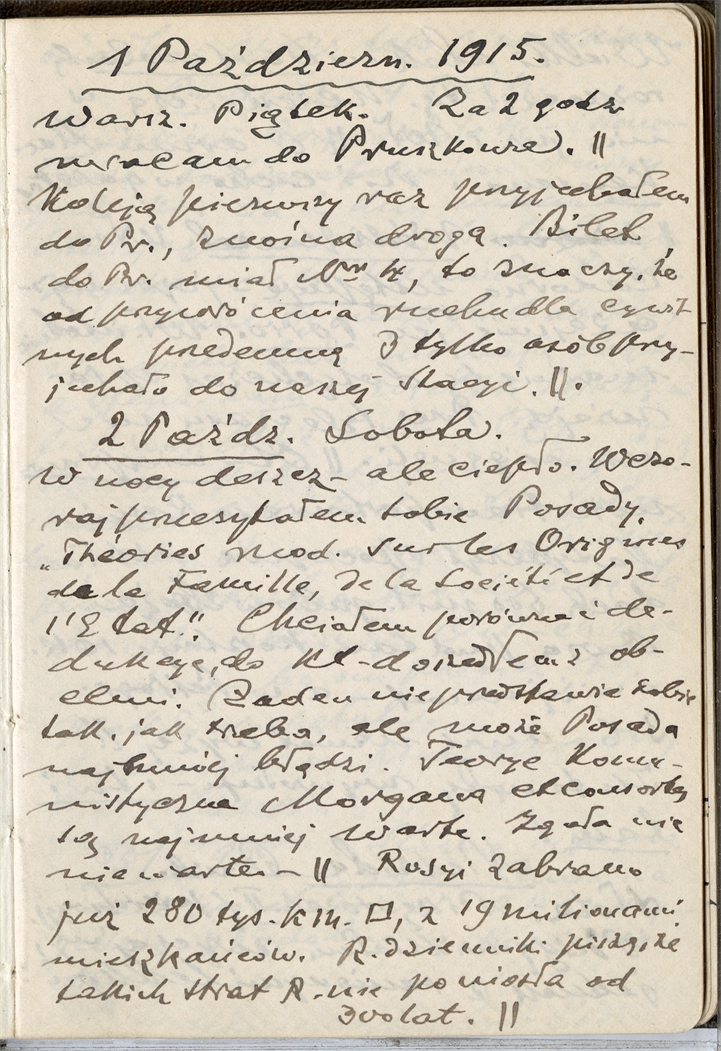 1 Październ. 1915.
Warsz. Piątek. Za 2 godz
wracam do Pruszkowa. ||
Koleją pierwszy raz przyjechałem
do Pr., znojna droga. Bilet
do Pr. miał Nr 4, to znaczy, że
od przywrócenia ruchu dla cywil-
nych przedemną 3 tylko osób przy-
jechało do naszej Stacyi. ||.
2 Paźdz. Sobota.
W nocy deszcz – ale ciepło. Wczo-
raj przeczytałem sobie Posady,
„Théories mod. sur les Origines
de la Famille, de la Société et de
l'Etat". Chciałem porówna i de-
dukcye, do kt– doszedłem z ob-
cemi. Żaden nie przedstawia sobie
tak, jak trzeba, ale może Posada
najmniej błądzi. Teorye Komu-
nistyczne Morgana et consortes
są najmniej warte. Zgoła nic
nie warte. – || Rosyi zabrano
już 280 tys. km. □, z 19 milionami
mieszkańców. R. dzienniki piszą, że
takich strat R. nie poniosła od
300 lat. ||